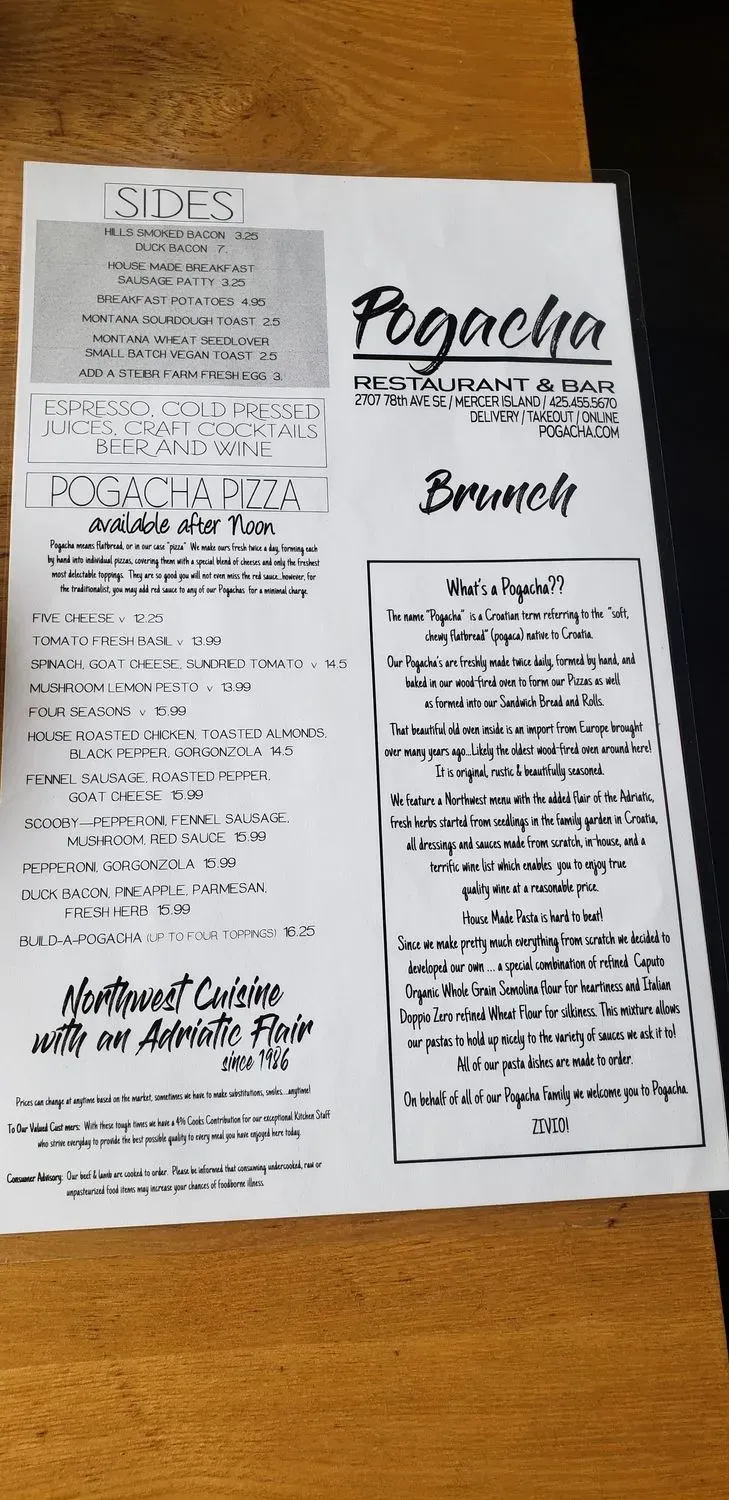 SIDES
HILLS SMOKED BACON 3.25
DUCK BACON 7.
HOUSE MADE BREAKFAST
SAUSAGE PATTY 3.25
BREAKFAST POTATOES 4.95
MONTANA SOURDOUGH TOAST 2.5
MONTANA WHEAT SEEDLOVER
SMALL BATCH VEGAN TOAST 2.5
ADD A STEIBR FARM FRESH EGG 3.
ESPRESSO, COLD PRESSED
JUICES, CRAFT COCKTAILS
BEER AND WINE
POGACHA PIZZA
available after Noon
Pogacha means flatbread, or in our case "pizza" We make ours fresh twice a day, forming each
by hand into individual pizzas, covering them with a special blend of cheeses and only the freshest
most delectable toppings. They are so good you will not even miss the red sauce...however, for
the traditionalist, you may add red sauce to any of our Pogachas for a minimal charge.
FIVE CHEESE v 12.25
TOMATO FRESH BASIL v 13.99
SPINACH, GOAT CHEESE, SUNDRIED TOMATO v 14.5
MUSHROOM LEMON PESTO v 13.99
FOUR SEASONS v 15.99
HOUSE ROASTED CHICKEN, TOASTED ALMONDS,
BLACK PEPPER, GORGONZOLA 14.5
FENNEL SAUSAGE, ROASTED PEPPER,
GOAT CHEESE 15.99
SCOOBY—PEPPERONI, FENNEL SAUSAGE,
MUSHROOM, RED SAUCE 15.99
PEPPERONI, GORGONZOLA 15.99
DUCK BACON, PINEAPPLE, PARMESAN,
FRESH HERB 15.99
BUILD-A-POGACHA (UP TO FOUR TOPPINGS) 16.25
Northwest Cuisine
with an Adriatic Flair
since 1986
Prices can change at anytime based on the market, sometimes we have to make substitutions, smiles...anytime!
To Our Valued Cust mers: With these tough times we have a 4% Cooks Contribution for our exceptional Kitchen Staff
who strive everyday to provide the best possible quality to every meal you have enjoyed here today.
Consumer Advisory: Our beef & lamb are cooked to order. Please be informed that consuming undercooked, raw or
unpasteurized food items may increase your chances of foodborne illness.
Pogacha
RESTAURANT & BAR
2707 78th AVE SE / MERCER ISLAND / 425.455.5670
DELIVERY / TAKEOUT / ONLINE
POGACHA.COM
Brunch
What's a Pogacha??
The name "Pogacha" is a Croatian term referring to the "soft,
chewy flatbread" (pogaca) native to Croatia.
Our Pogacha's are freshly made twice daily, formed by hand, and
baked in our wood-fired oven to form our Pizzas as well
as formed into our Sandwich Bread and Rolls.
That beautiful old oven inside is an import from Europe brought
over many years ago...Likely the oldest wood-fired oven around here!
It is original, rustic & beautifully seasoned.
We feature a Northwest menu with the added flair of the Adriatic,
fresh herbs started from seedlings in the family garden in Croatia,
all dressings and sauces made from scratch, in-house, and a
terrific wine list which enables you to enjoy true
quality wine at a reasonable price.
House Made Pasta is hard to beat!
Since we make pretty much everything from scratch we decided to
developed our own ... a special combination of refined Caputo
Organic Whole Grain Semolina flour for heartiness and Italian
Doppio Zero refined Wheat Flour for silkiness. This mixture allows
our pastas to hold up nicely to the variety of sauces we ask it to!
All of our pasta dishes are made to order.
On behalf of all of our Pogacha Family we welcome you to Pogacha.
ZIVIO!